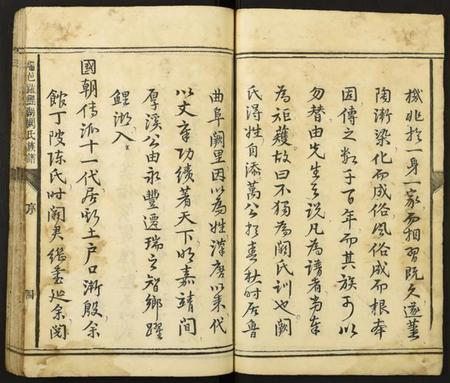 機兆於一身一家而相習既久遂薰
陶漸染化而成俗風俗成而根本
因傳之数千百年而其族可以
勿替由先生之説凡為譜者當奉
為矩矱故曰不獨為闕氏訓也闕
氏得姓自添萬公於春秋时居魯
曲阜闕里因以為姓漢唐以来代
以文章功績著天下明嘉靖間
厚溪公由永豐遷瑞之智鄉躍
鯉湖入
國朝傳派十一代居新土户口漸殷余
館丁陂陈氏时闕君继委延余閲
族譜
序
四